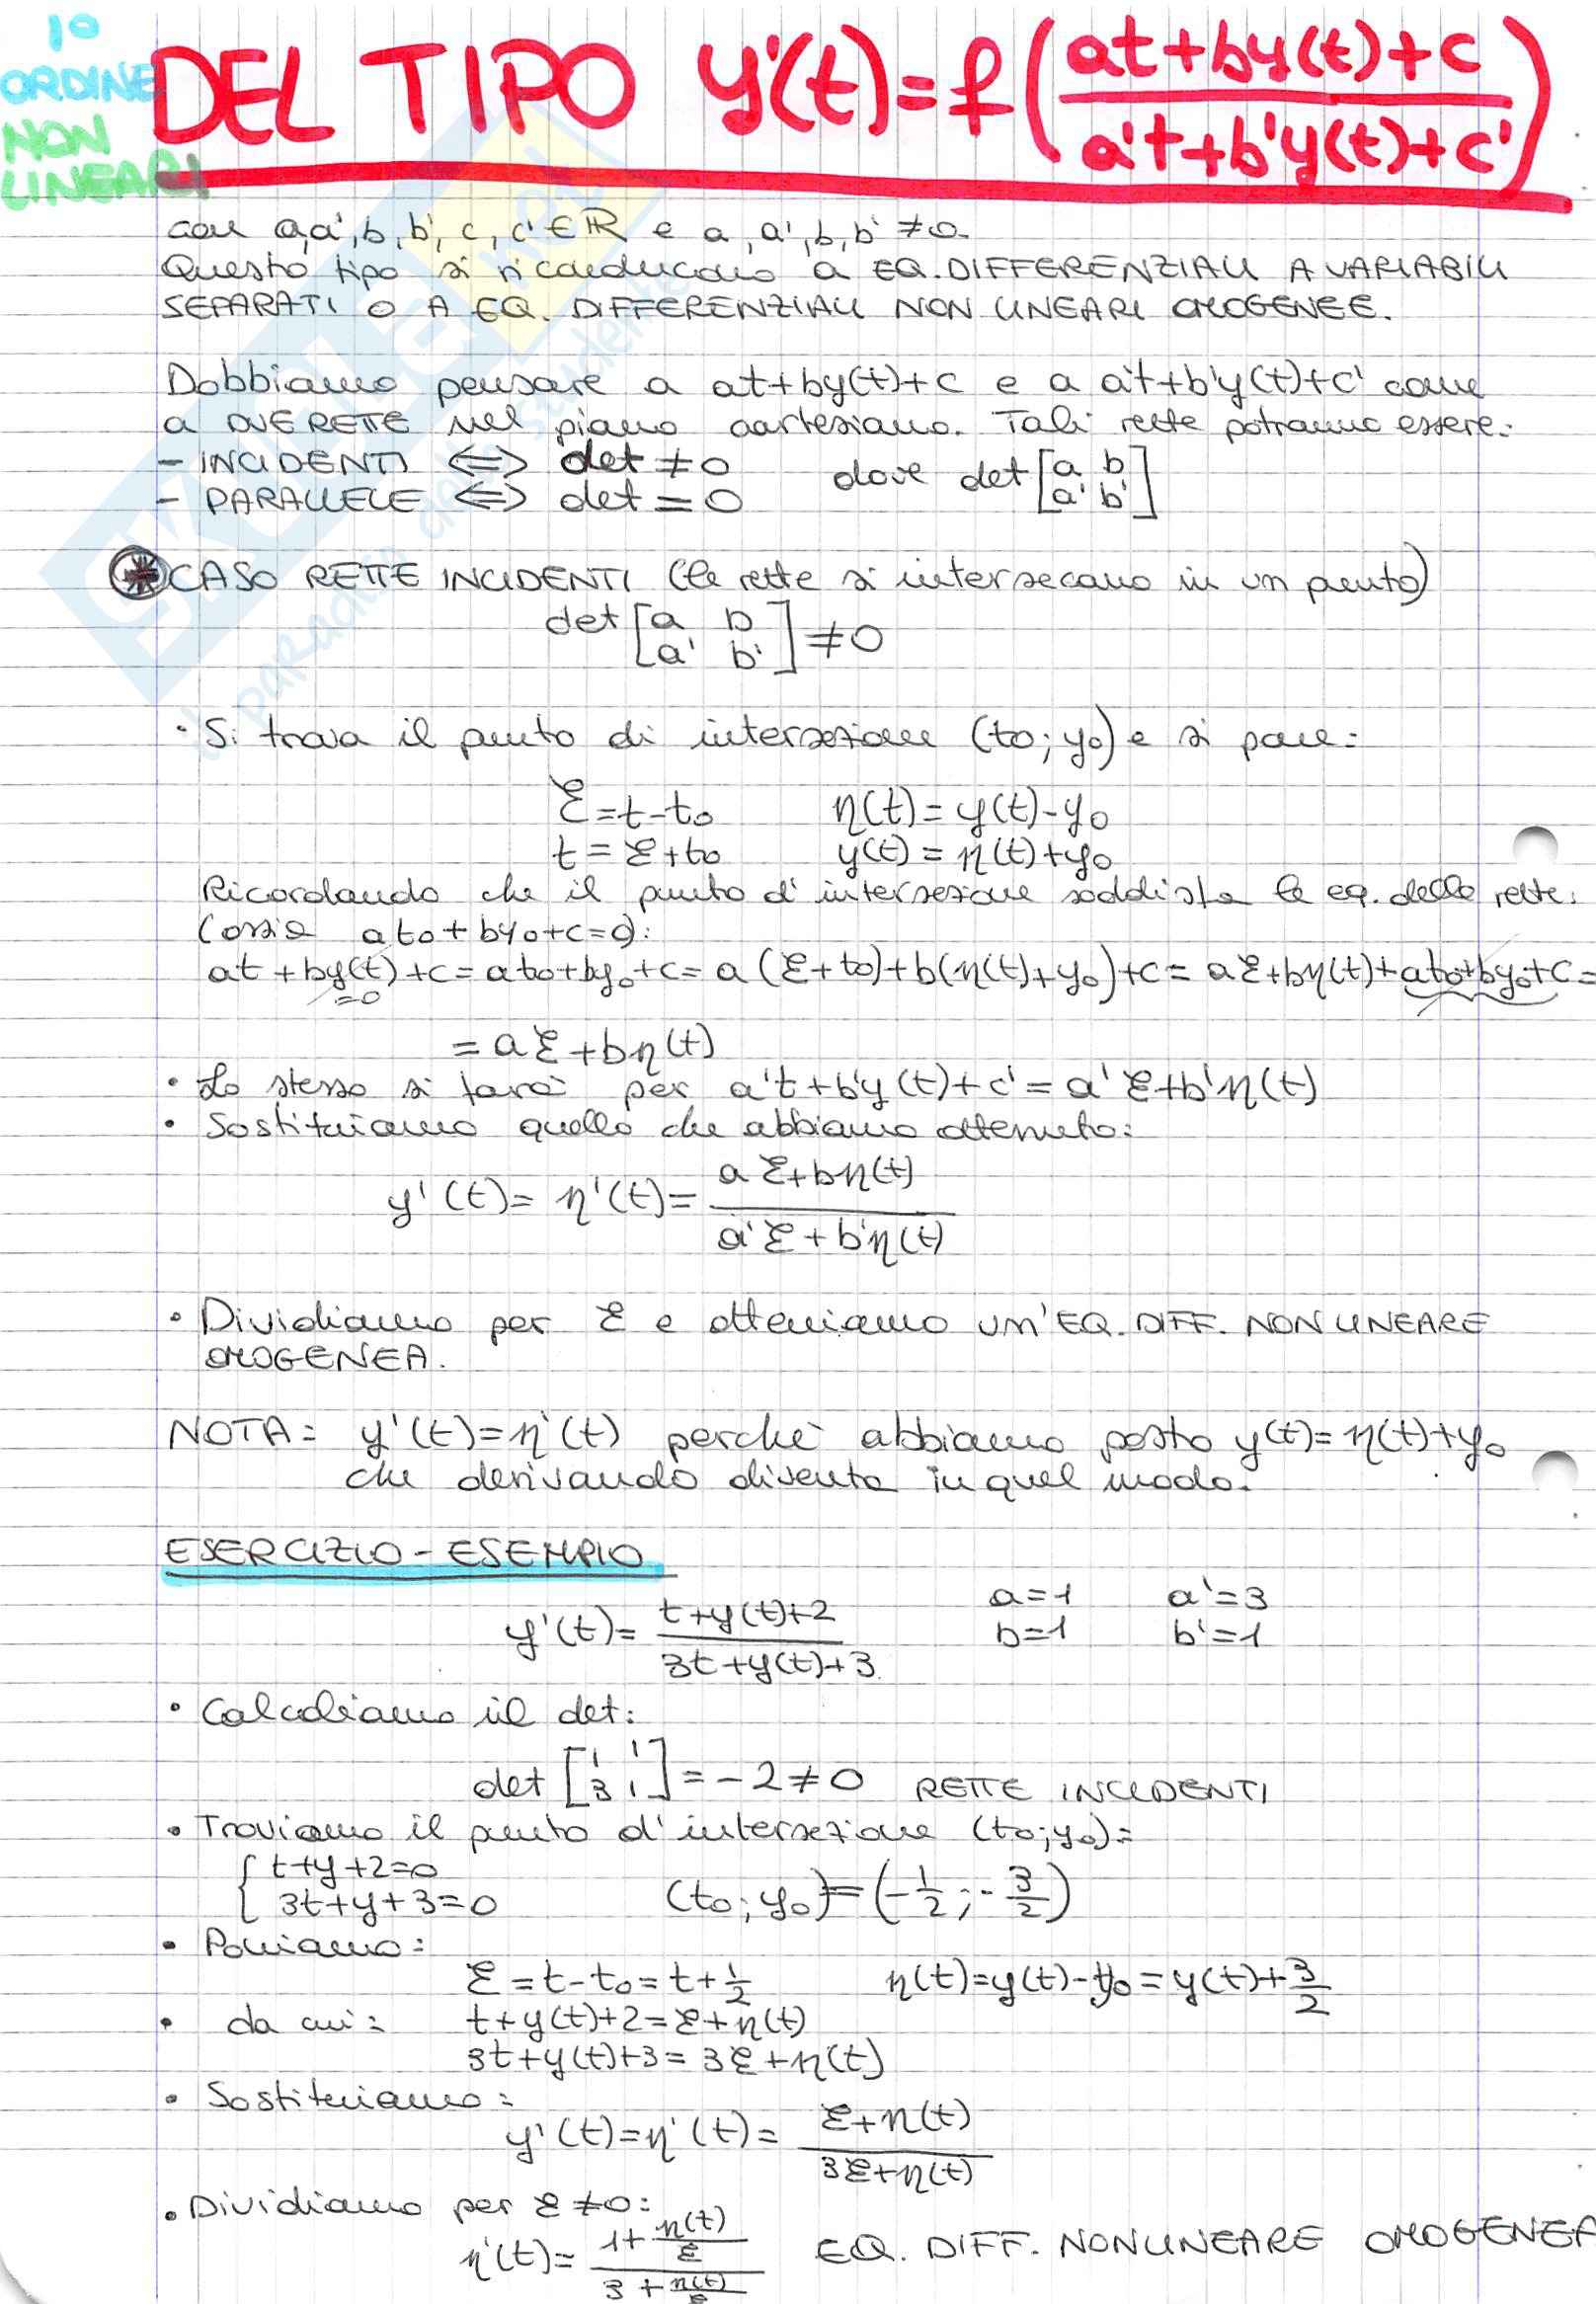 1°
ORDINE
NON
LINEARI
DEL TIPO y'(t)=f((at+by(t)+c)/(a't+b'y(t)+c'))
con a,a',b,b',c,c'∈ℝ e a,a',b,b'≠0.
Questo tipo si riconducono a EQ.DIFFERENZIALI A VARIABILI
SEPARATI O A EQ. DIFFERENZIALI NON LINEARI OMOGENEE.
Dobbiamo pensare a at+by(t)+c e a a't+b'y(t)+c' come
a DUE RETTE nel piano cartesiano. Tali rette potranno essere:
- INCIDENTI ⟺ det≠0 dove det[a b
- PARALLELE ⟺ det=0 a' b']
⊛ CASO RETTE INCIDENTI (le rette si intersecano in un punto)
det[a b
a' b']≠0
· Si trova il punto di intersezione (t₀;y₀) e si pone:
ξ=t-t₀ η(t)=y(t)-y₀
t=ξ+t₀ y(t)=η(t)+y₀
Ricordando che il punto d'intersezione soddisfa le eq. delle rette.
(ossia at₀+by₀+c=0):
at+by(t)+c=at₀+by₀+c=a(ξ+t₀)+b(η(t)+y₀)+c=aξ+bη(t)+at₀+by₀+c=
=0
=aξ+bη(t)
· Lo stesso si farà per a't+b'y(t)+c'=a'ξ+b'η(t)
· Sostituiamo quello che abbiamo ottenuto:
y'(t)=η'(t)=(aξ+bη(t))/(a'ξ+b'η(t))
· Dividiamo per ξ e otteniamo UN'EQ.DIFF. NON LINEARE
OMOGENEA.
NOTA: y'(t)=η'(t) perché abbiamo posto y(t)=η(t)+y₀
che derivando diventa in quel modo.
ESERCIZIO - ESEMPIO
y'(t)=(t+y(t)+2)/(3t+y(t)+3) a=1 a'=3
b=1 b'=1
· Calcoliamo il det:
det[1 1
3 1]=-2≠0 RETTE INCIDENTI
· Troviamo il punto d'intersezione (t₀;y₀):
{t+y+2=0
3t+y+3=0 (t₀;y₀)=(-1/2;-3/2)
· Poniamo:
ξ=t-t₀=t+1/2 η(t)=y(t)-y₀=y(t)+3/2
· da cui: t+y(t)+2=ξ+η(t)
3t+y(t)+3=3ξ+η(t)
· Sostituiamo:
y'(t)=η'(t)=(ξ+η(t))/(3ξ+η(t))
· Dividiamo per ξ≠0:
η'(t)=(1+η(t)/ξ)/(3+η(t)/ξ) EQ. DIFF. NON LINEARE OMOGENEA